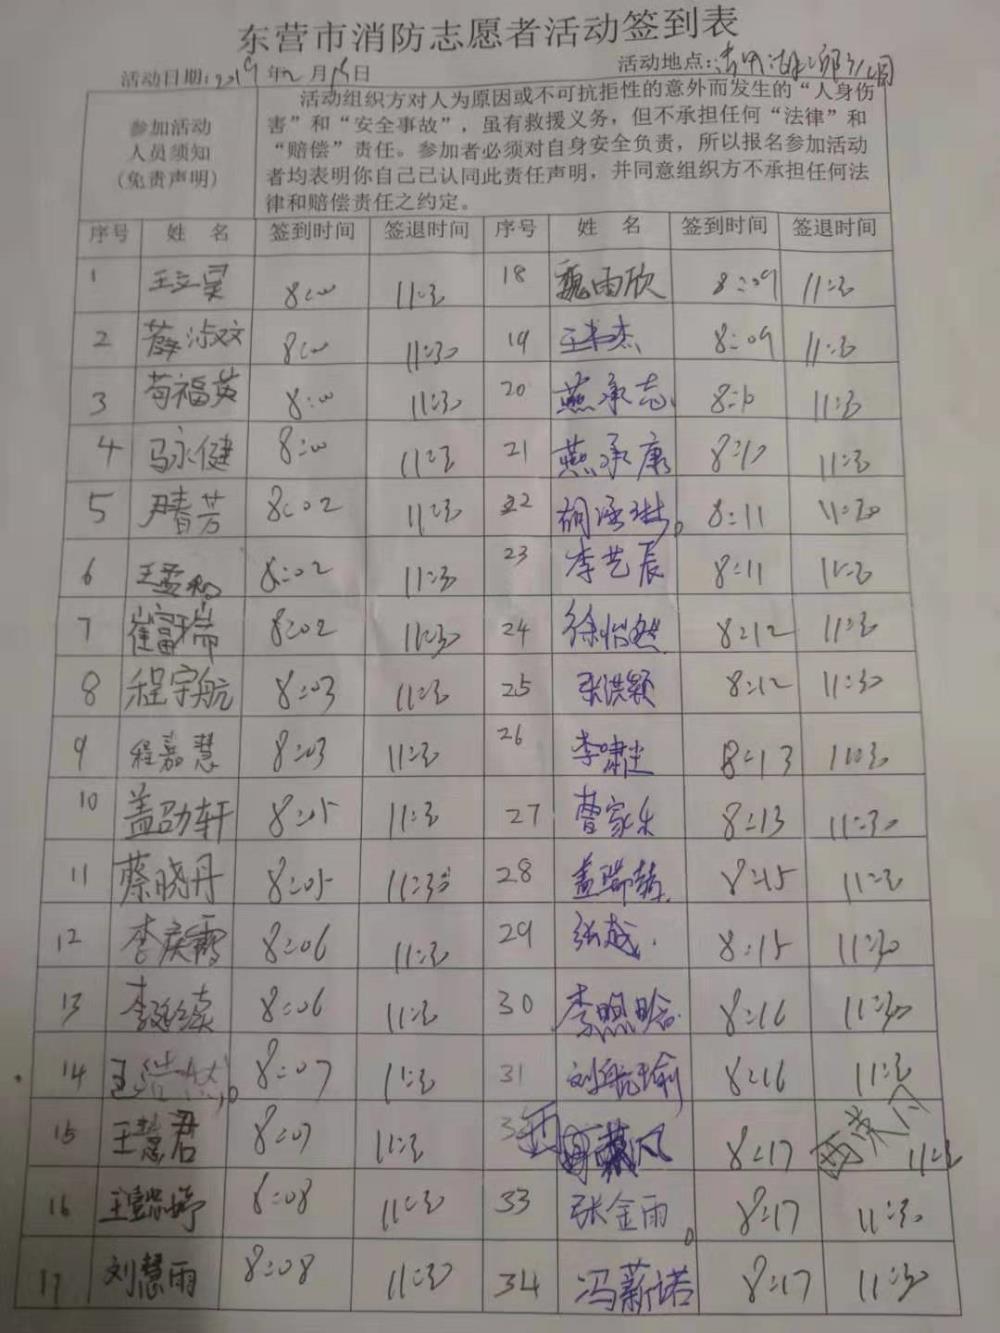 东营市消防志愿者活动签到表
活动日期:2019年2月15日 活动地点:
参加活动
人员须知
(免责声明)
活动组织方对人为原因或不可抗拒性的意外而发生的“人身伤
害”和“安全事故”，虽有救援义务，但不承担任何“法律”和
“赔偿”责任。参加者必须对自身安全负责，所以报名参加活动
者均表明你自己已认同此责任声明，并同意组织方不承担任何法
律和赔偿责任之约定。
序号 姓 名 签到时间 签退时间 序号 姓 名 签到时间 签退时间
1 王立昊 8:00 11:30 18 魏雨欣 8:09 11:30
2 薛淑文 8:00 11:30 19 王杰 8:09 11:30
3 苟福英 8:00 11:30 20 燕承志 8:10 11:30
4 马永健 8:00 11:30 21 燕承康 8:10 11:30
5 尹春芳 8:02 11:30 22 胡涵琳 8:11 11:30
6 王孟和 8:02 11:30 23 李艺辰 8:11 11:30
7 崔富瑞 8:02 11:30 24 徐怡然 8:12 11:30
8 程宇航 8:03 11:30 25 张洪颖 8:12 11:30
9 程嘉慧 8:03 11:30 26 李啸尘 8:13 11:30
10 盖劭轩 8:05 11:30 27 曹家乐 8:13 11:30
11 蔡晓丹 8:05 11:30 28 盖瑞 8:15 11:30
12 李庆霞 8:06 11:30 29 张越 8:15 11:30
13 李延续 8:06 11:30 30 李煦晗 8:16 11:30
14 王浩 8:07 11:30 31 刘航瑜 8:16 11:30
15 王慧君 8:07 11:30 32 8:17 11:30
16 王懿婷 8:08 11:30 33 张金雨 8:17 11:30
17 刘慧雨 8:08 11:30 34 冯薪诺 8:17 11:30